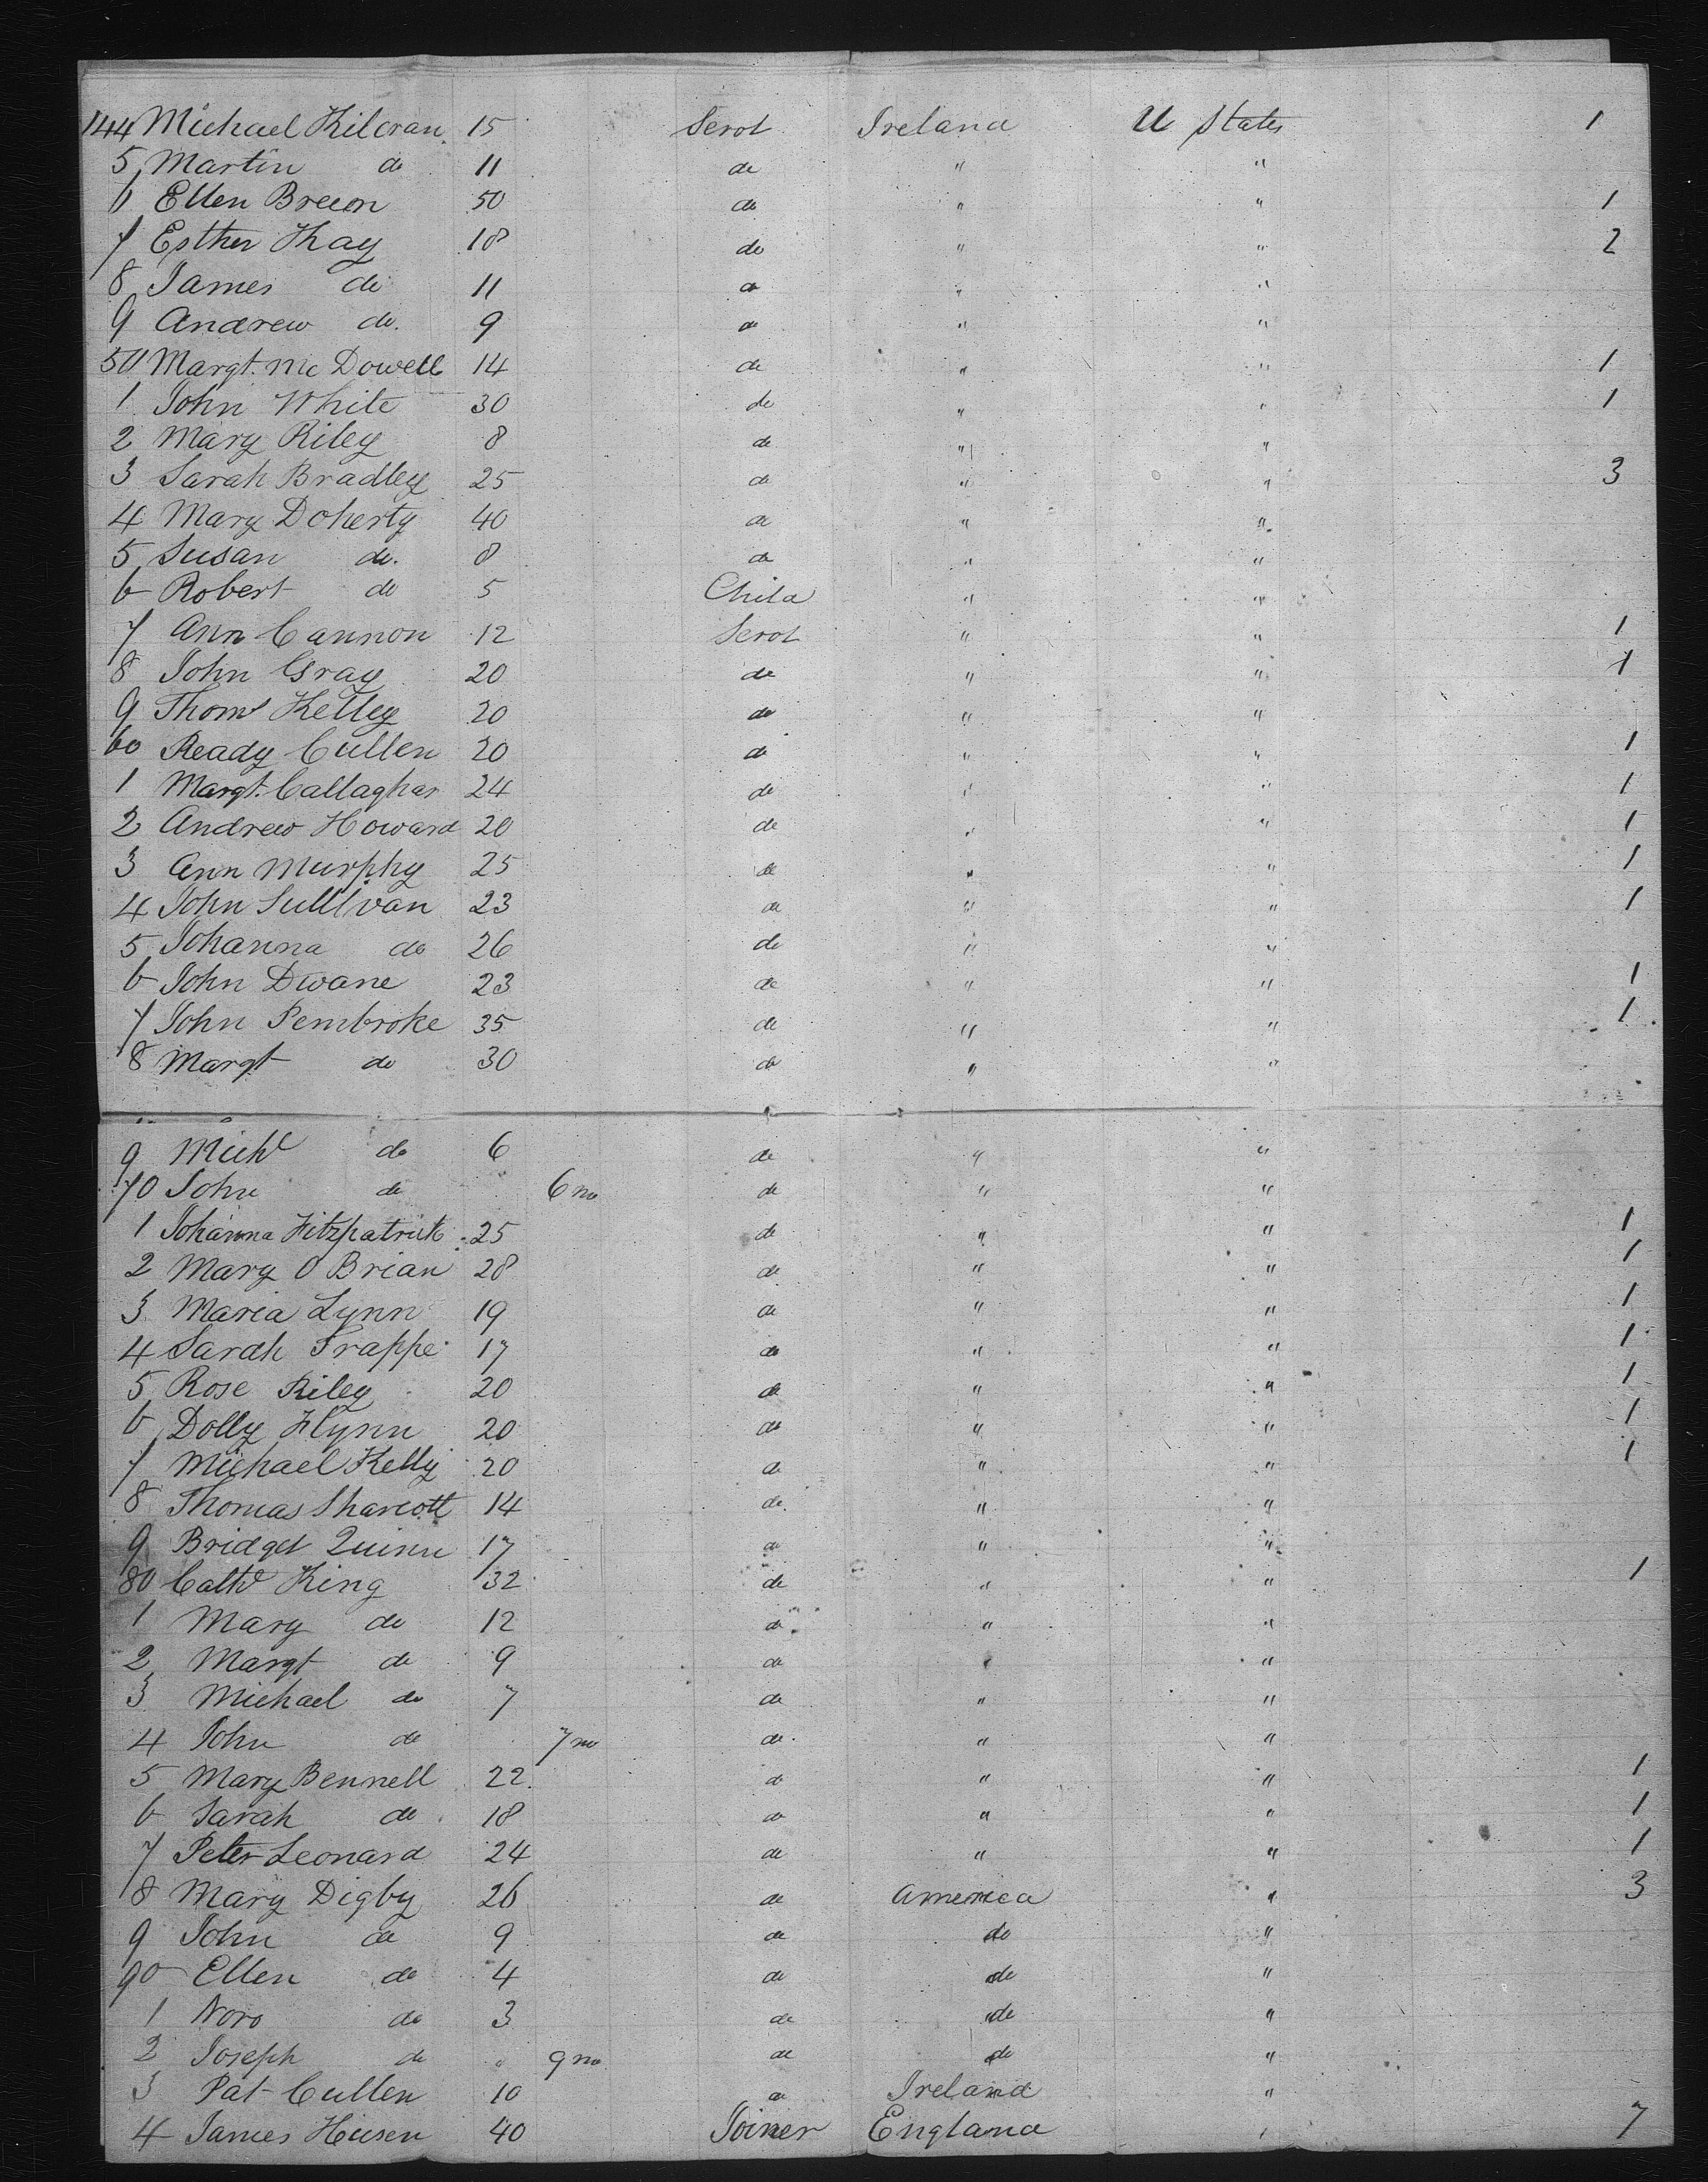 144 Michael Kilcran 15 Servt Ireland U States 1
5 Martin do 11 do " "
6 Ellen Breen 50 do " " 1
7 Esther Kay 18 do " " 2
8 James do 11 do " "
9 Andrew do. 9 do " "
50 Margt. Mc Dowell 14 do " " 1
1 John White 30 do " " 1
2 Mary Riley 8 do " "
3 Sarah Bradley 25 do " " 3
4 Mary Doherty 40 do " "
5 Susan do. 8 do " "
6 Robert do 5 Child " "
7 Ann Cannon 12 Servt " " 1
8 John Gray 20 do " " 1
9 Thoms Kelley 20 do " "
60 Ready Cullen 20 do " " 1
1 Margt. Callaghan 24 do " " 1
2 Andrew Howard 20 do " " 1
3 Ann Murphy 25 do " " 1
4 John Sullivan 23 do " " 1
5 Johanna do 26 do " "
6 John Dwane 23 do " " 1
7 John Pembroke 35 do " " 1
8 Margt do 30 do " "
9 Michl do 6 do " "
70 John do 6 mo do " "
1 Johanna Fitzpatrick 25 do " " 1
2 Mary O Brian 28 do " " 1
3 Maria Lynn 19 do " " 1
4 Sarah Trappe 17 do " " 1
5 Rose Riley 20 do " " 1
6 Dolly Flynn 20 do " " 1
7 Michael Kelly 20 do " " 1
8 Thomas Sharcott 14 do. " "
9 Bridget Quinn 17 do " "
80 Cathe King 32 do " " 1
1 Mary do 12 do. " "
2 Margt do 9 do " "
3 Michael do 7 do " "
4 John do 7 mo do. " "
5 Mary Bennell 22 do " " 1
6 Sarah do 18 do " " 1
7 Peter Leonard 24 do " " 1
8 Mary Digby 26 do America " 3
9 John do 9 do do "
90 Ellen do 4 do do "
1 Noro do 3 do do "
2 Joseph do " 9 mo do do "
3 Pat Cullen 10 do Ireland "
4 James Heusen 40 Joiner England " 7